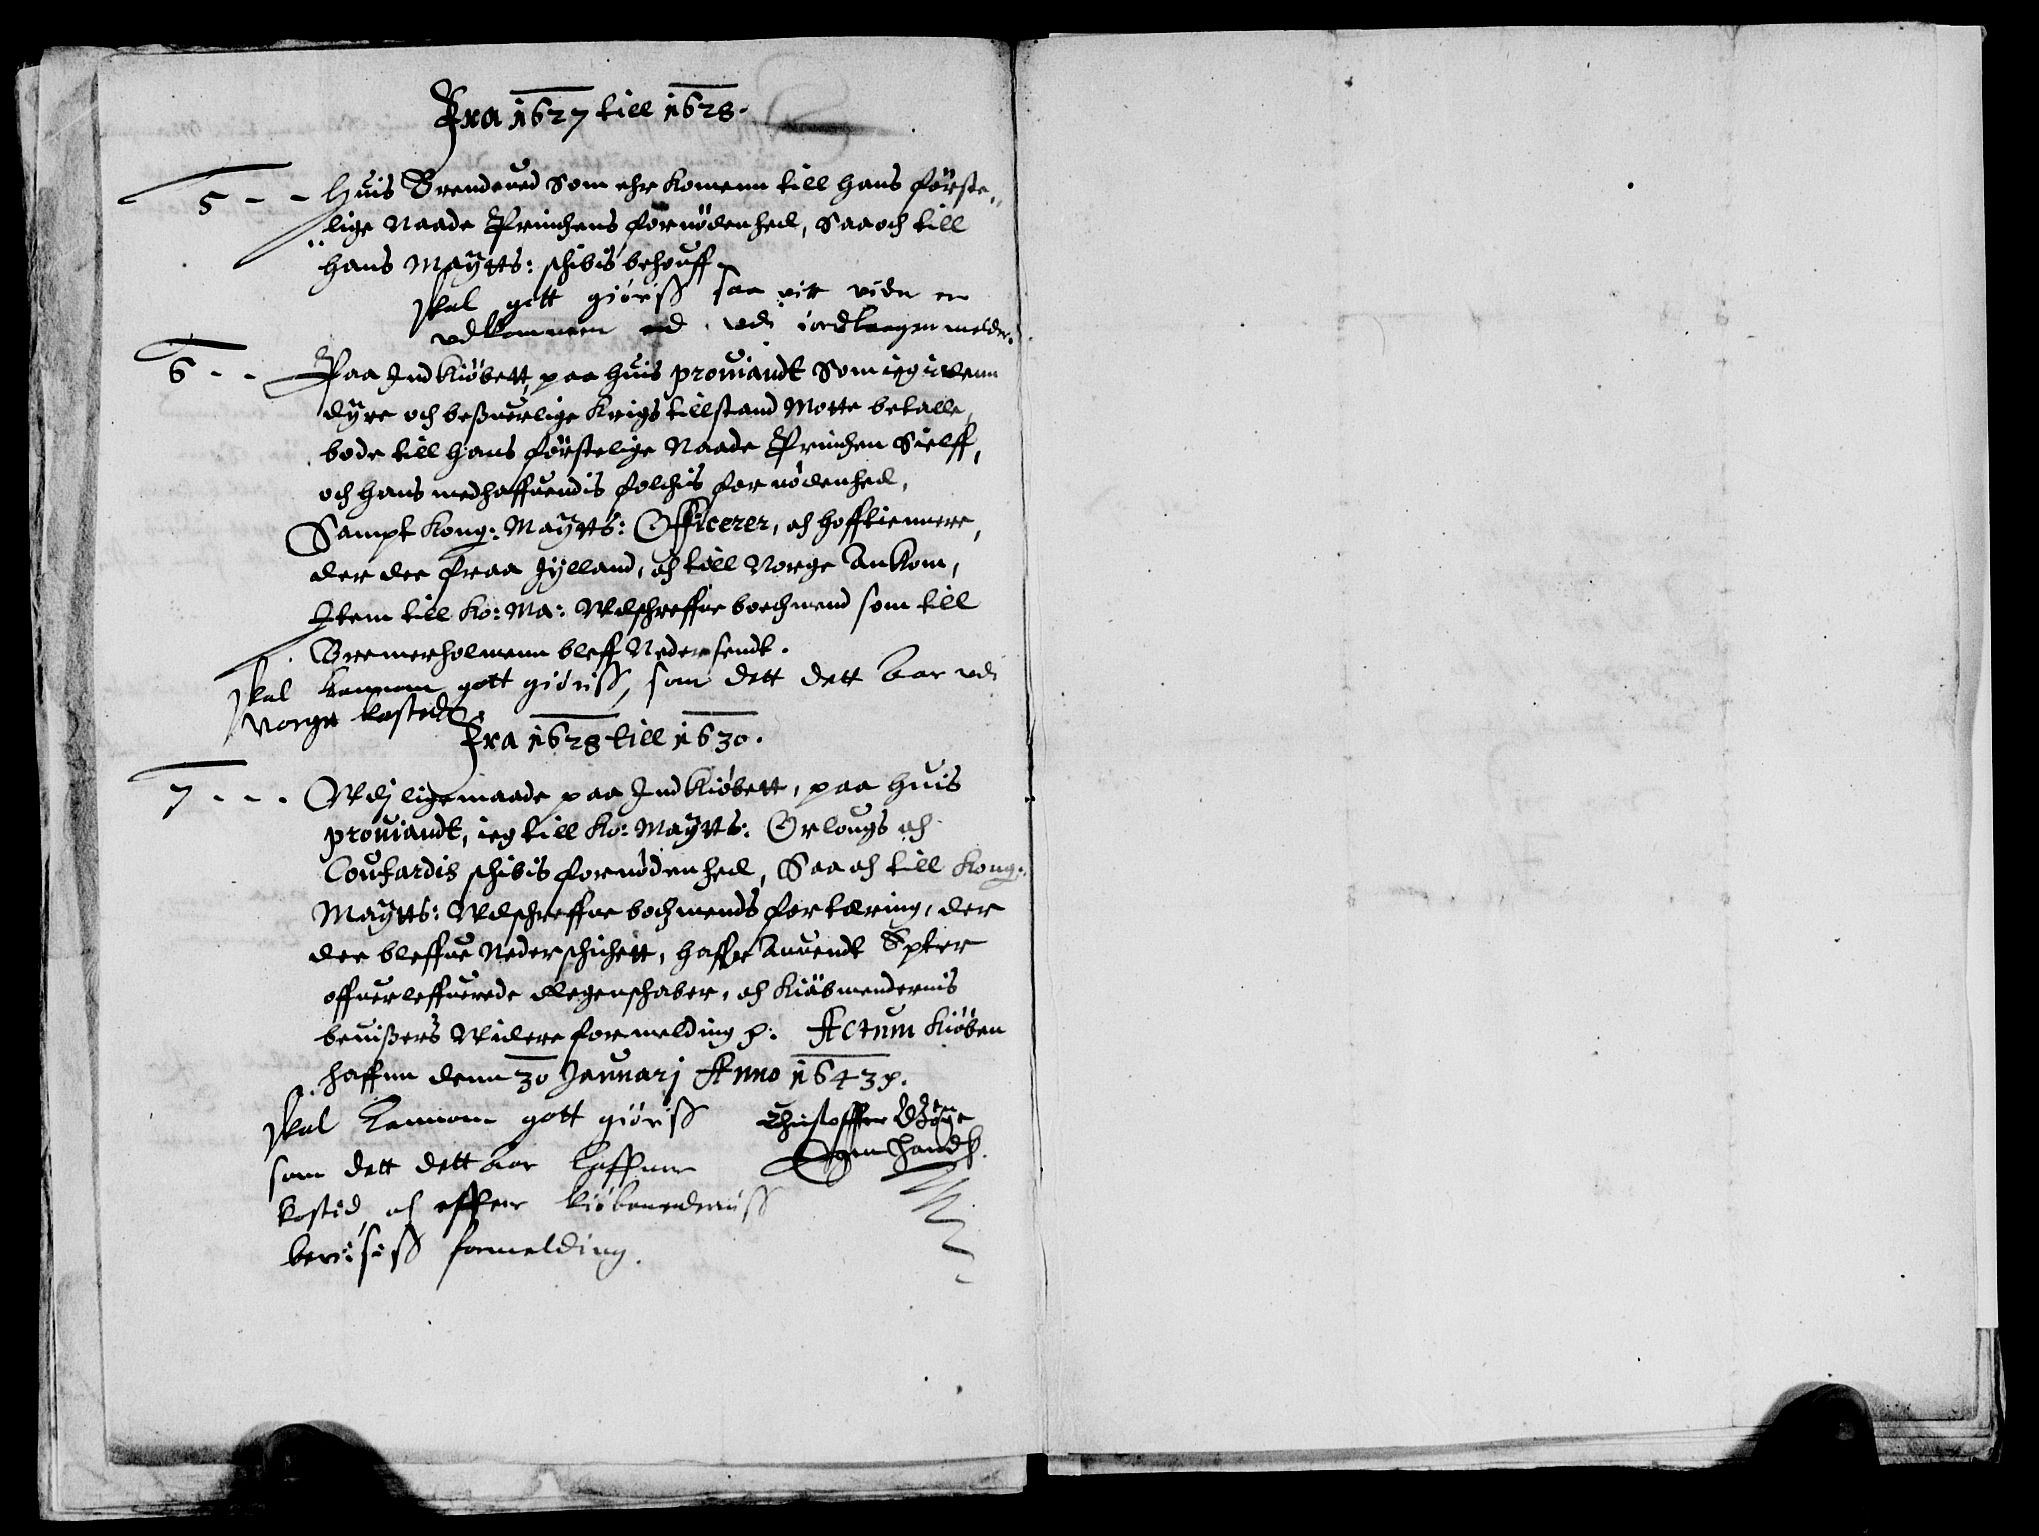 Fra 1627 till 1628.
5 - - Huis Brendeued Som ehr Komenn till hans förste„
„lige Naade Printzens fornödenhed, Saa och till
hans Maÿtts: schibis behouff.
skal gott giøris saa vit uden er
udkommen udi iordbaagen melder.
6 - - Paa Indkiöbett, paa huis prouiandt Som ieg i denn
dÿre och beßuerlige Krigs tillstand Motte betalle,
bode till hans förstelige Naade Printzen Sielff,
och hans medhaffuendis folchis fornödenhed,
Sampt Kong: Maÿtts: Officerer, och hofftiennere,
der dee fraa Jÿlland, och till Norge AnKom,
Item till Ko: Ma: Wdschreffne boedzmend som till
Bremerholmenn bleff Neder sendt.
skal kannom gott giøris, som dett dett baar udi
Norge kostede
Fra 1628 till 1630.
7 - - - Wdj ligemaade paa Indkiöbett, paa huis
prouiandt, ieg till Ko: Maÿtts: Orlougs och
Coufardis schibis fornödenhed, Saa och till Kong:
Maÿtts: Wdschreffne bodzmends fortæring, der
dee bleffue Nederschichett, haffr Anuendt Epter
offuerleffuerede Regenschaber, och Kiöbmendernis
beuißers Widere formelding p: Actum Kiöben
haffnn denn 30 Januarj Anno 1643 p.
skal kannom gott giøris
som dett dett baar haffuer
kostid och effter kiöbmendernis
beuisis formelding.
Christoffer Gøye
Egen Handt.